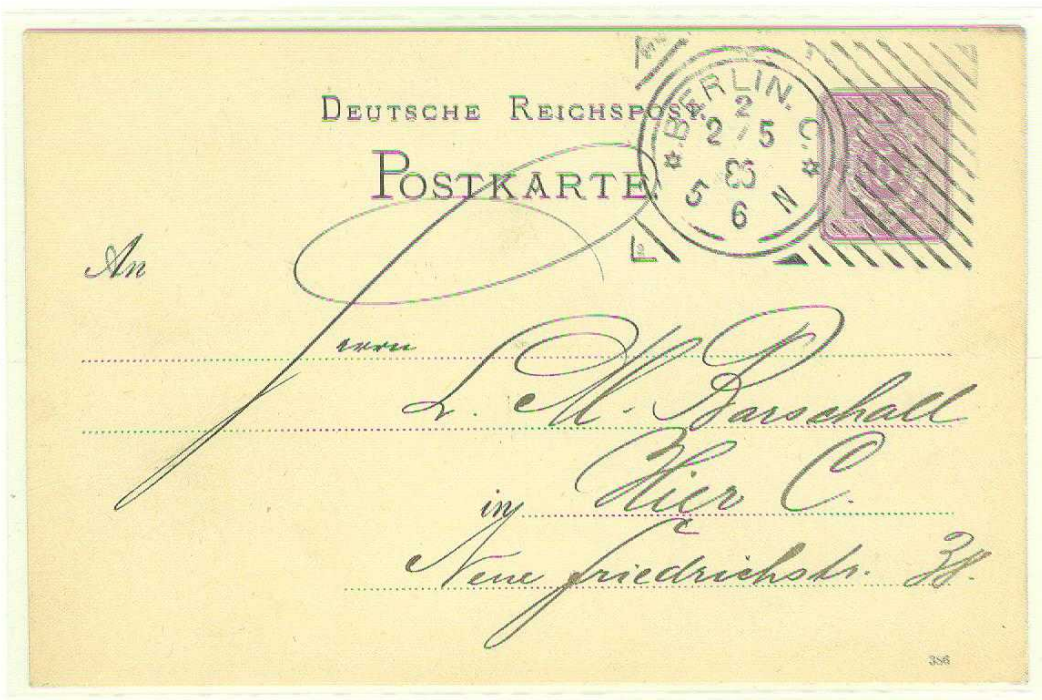 DEUTSCHE REICHSPOST.
POSTKARTE
BERLIN. C.
2
2/5
86
5 6 N
An
Herrn
L. M. Barschall
in Hier C.
Neue Friedrichstr. 38.
386